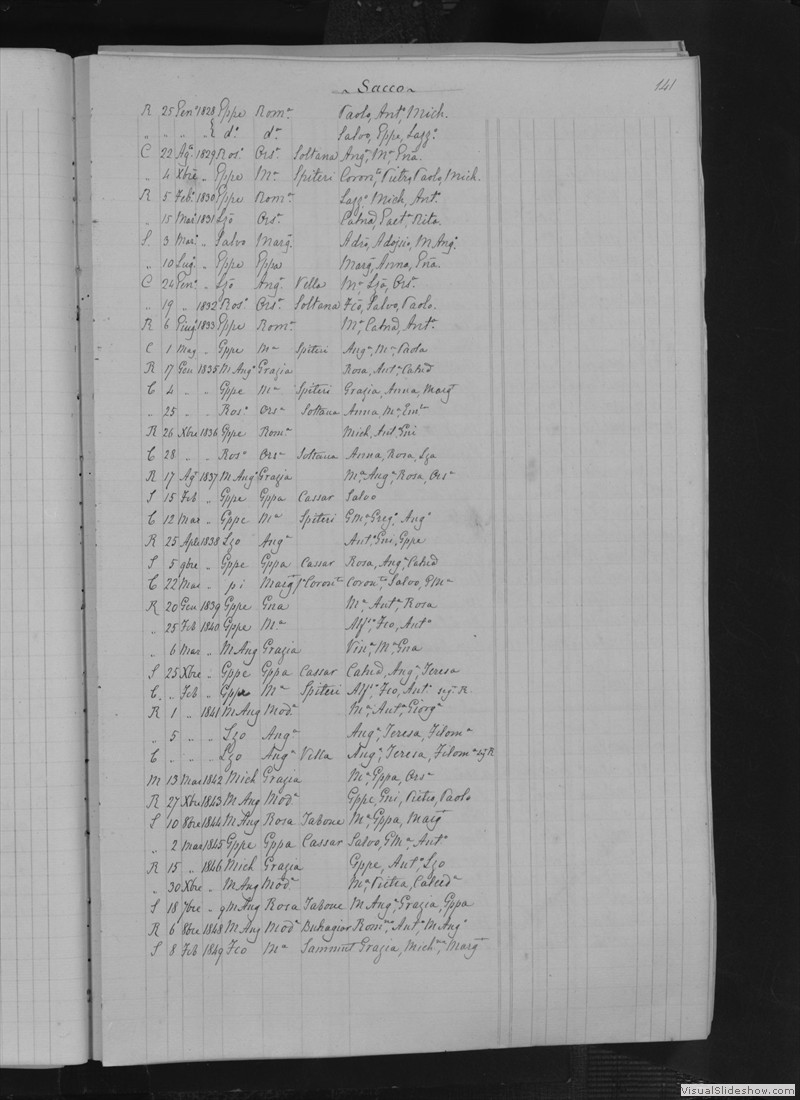 Sacco 141
R 25 Genº 1828 Gppe Romª Paolo, Antª, Mich.
„ „ „ „ & dº dª Salvo, Gppe, Lazzº
C 22 Agº 1829 Rosº Orsª Soltana Angª, Mª, Ena.
„ 4 Xbre „ Gppe Mª Spiteri Coronª, Pietro, Paolo, Mich.
R 5 Febº 1830 Gppe Romª Lazzº Mich, Antª
„ 15 Marº 1831 Lzo Orsª Catnd, Rita
S 3 Marº „ Salvo Margª M Angº
„ 10 Lugº „ Gppe Gppa Marg, Anna, Ena.
C 24 Genº „ Lzo Angª Vella Mª Lzo, Orsª
„ 19 „ 1832 Rosº Orsª Soltana Fco, Salvo, Paolo.
R 6 Giugº 1833 Gppe Romª Mª, Catnd, Antª
C 1 Mag „ Gppe Mª Spiteri Angª, Mª, Paola
R 17 Gen 1835 M Angº Grazia Rosa, Antª, Catnd
C 4 „ „ Gppe Mª Spiteri Grazia, Anna, Marg
„ 25 „ „ Rosº Orsª Soltana Anna, Mª, Emª
R 26 Xbre 1836 Gppe Romª Mich, Ant, Gni
C 28 „ „ Rosº Orsª Soltana Anna, Rosa, Lza
R 17 Agº 1837 M Angº Grazia Mª, Angª, Rosa, Orsª
S 15 Feb „ Gppe Gppa Cassar Salvo
C 12 Mar „ Gppe Mª Spiteri GMª, Gregº, Angº
R 25 Aple 1838 Lzo Angª Antº, Gni, Gppe
S 5 9bre „ Gppe Gppa Cassar Rosa, Angª, Catnd
C 22 Mar „ pi Marg Coronª, Salvo, GMª
R 20 Gen 1839 Gppe Gna Mª, Antª, Rosa
„ 25 Feb 1840 Gppe Mª Alfº, Fco, Antª
„ 6 Mar „ M Ang Grazia Vinª, Mª, Gna
S 25 Xbre „ Gppe Gppa Cassar Catnd, Angª, Teresa
C „ Feb „ Gppe Mª Spiteri Alfº, Fco, Antª R.
R 1 „ 1841 M Ang Modª Mª, Antª, Giorgª
„ 5 „ „ Lzo Angª Angª, Teresa, Filomª
C „ „ „ Lzo Angª Villa Angª, Teresa, Filomª R
M 13 Mar 1842 Mich Grazia Mª, Gppa, Orsª
R 27 Xbre 1843 M Ang Modª Gppe, Gni, Pietro, Paolo
S 10 8bre 1844 M Ang Rosa Tabone Mª, Gppa, Marg
„ 2 Mar 1845 Gppe Gppa Cassar Salvo, GMª, Antº
R 15 „ 1846 Mich Grazia Gppe, Antº, Lzo
„ 30 Xbre „ M Ang Modª Mª, Pietra, Catedª
S 18 7bre „ M Ang Rosa Tabone M Angª, Grazia, Gppa
R 6 8bre 1848 M Ang Modª Buhagiar Romº, Antº, M Angº
S 8 Feb 1849 Fco Mª Sammut Grazia, Michª, Marg
VisualSlideshow.com